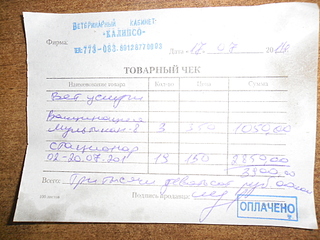 ВЕТЕРИНАРНЫЙ КАБИНЕТ:
"КАЛИПСО"
Фирма
Дата 20
ТОВАРНЫЙ ЧЕК
Наименование товара Кол-во Цена Сумма
Вет услуги
Вакцинация
3 350 1050,00
Стационар
19 150 2850,00
3900,00
Всего: Три тысячи девятьсот руб
Подпись продавца
ОПЛАЧЕНО